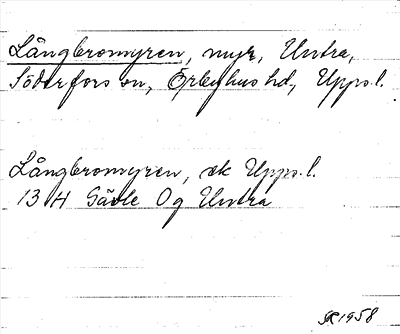 Långbromyren, myr, Untra,
Söderfors sn, Örbyhus hd, Upps. l.
Långbromyren, ek Upps. l.
13 H Gävle Og Untra
1958